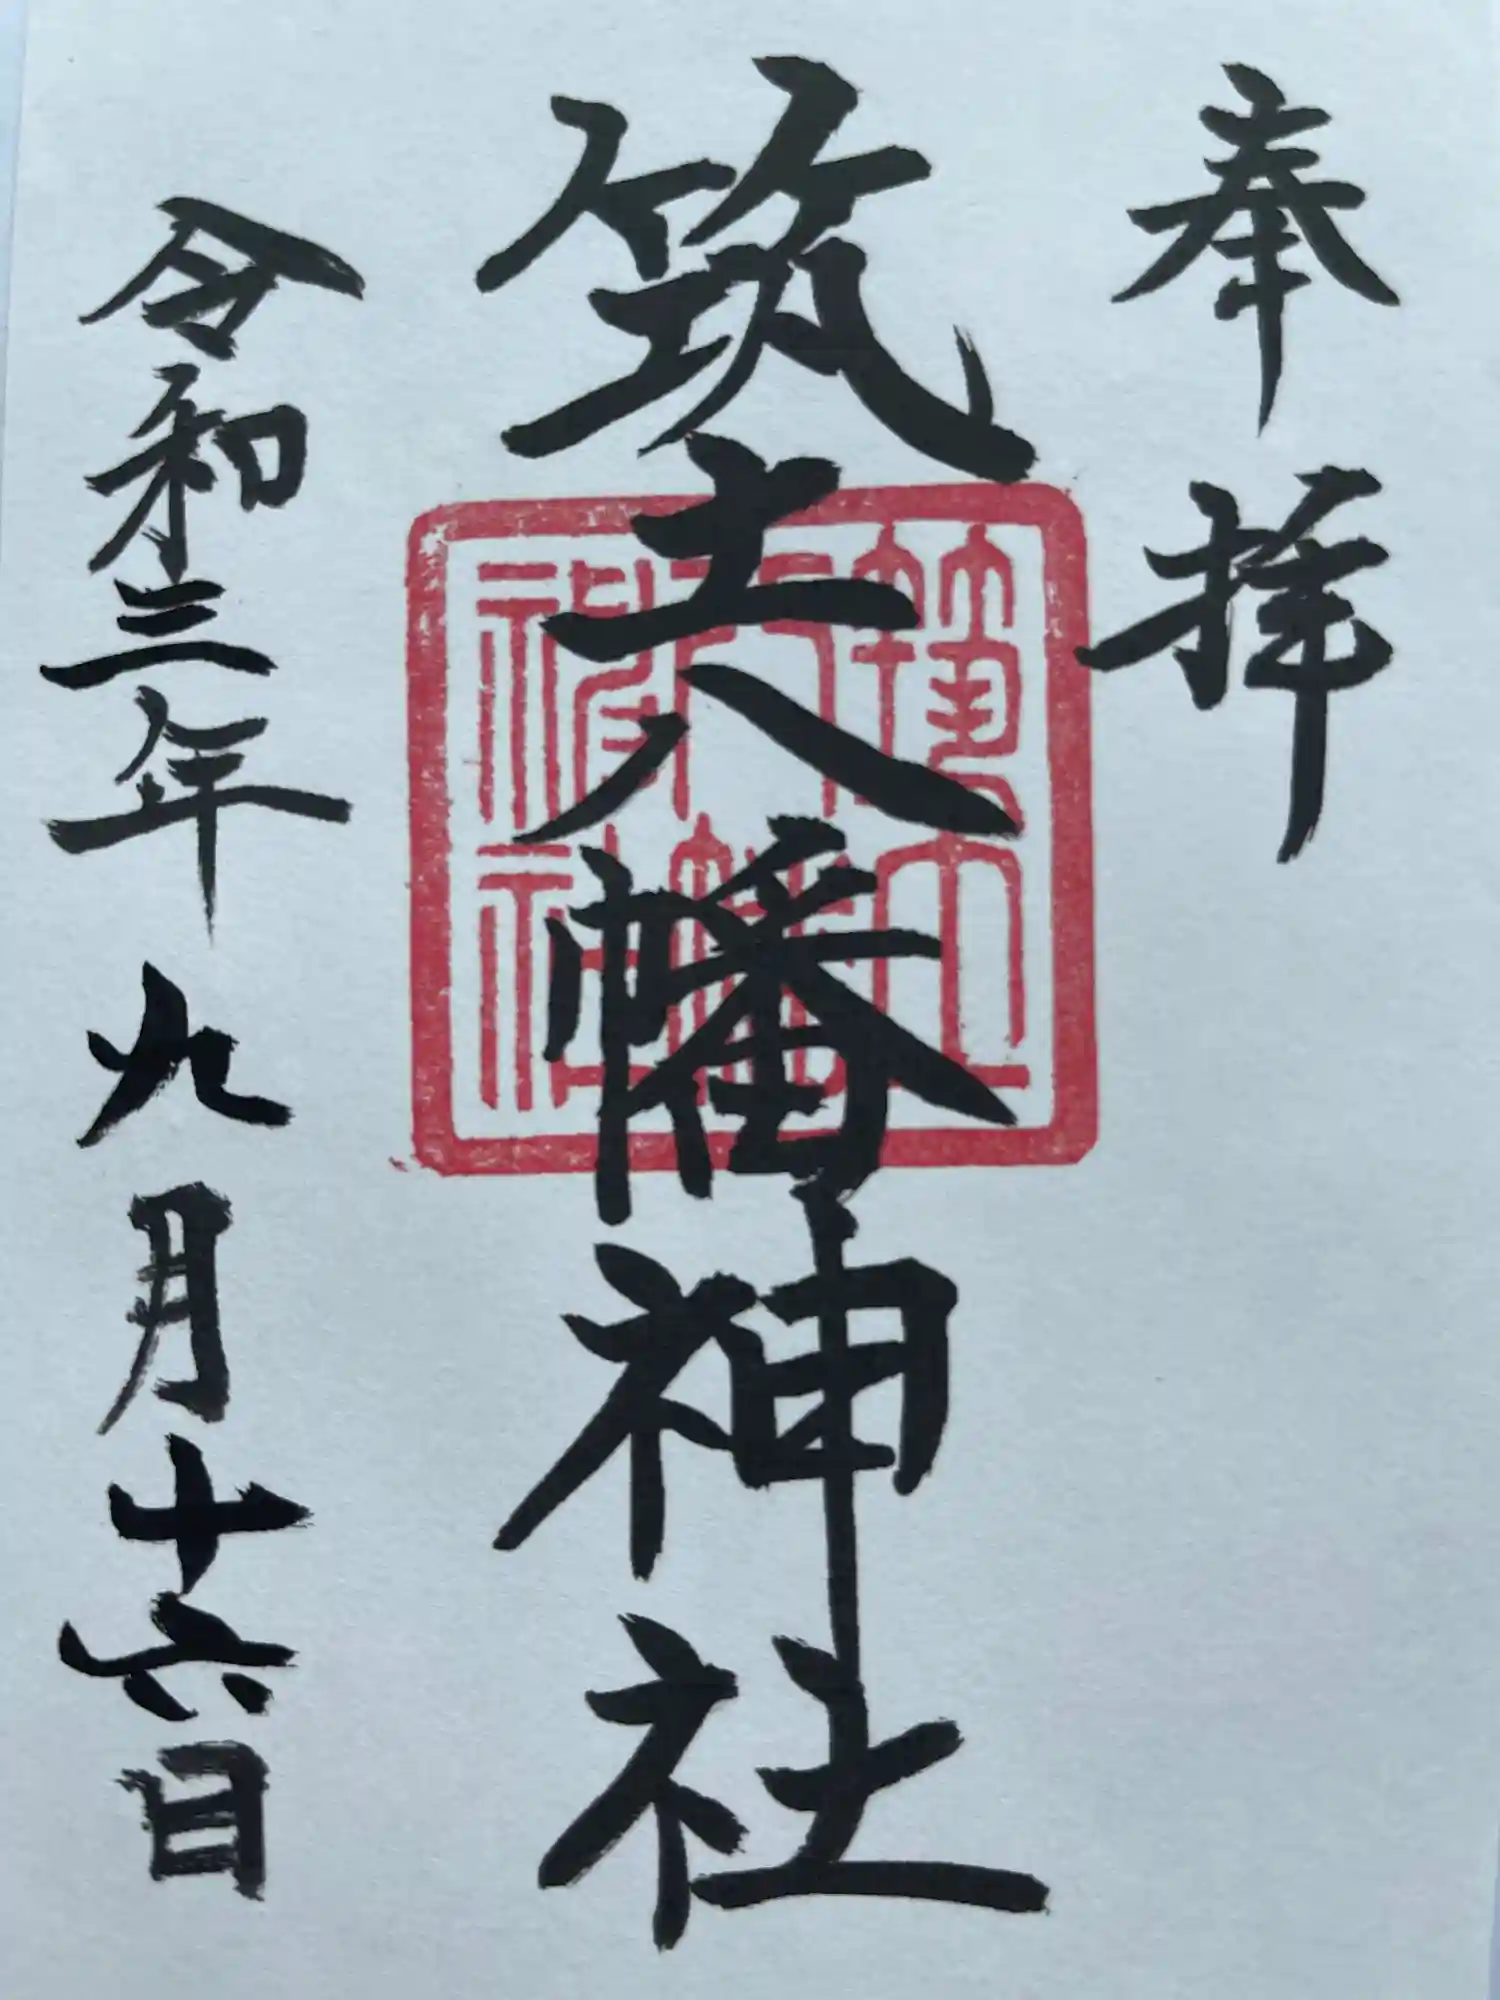 奉拝
筑土八幡神社
令和三年九月十六日
筑土
八幡
神社